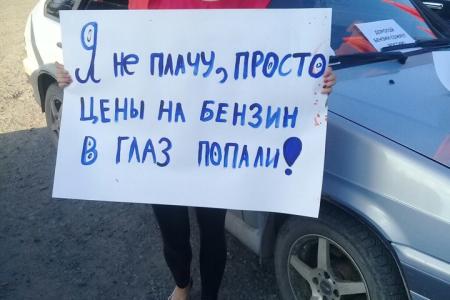 Я не плачу, просто
цены на бензин
в глаз попали!
дорогой
бензин